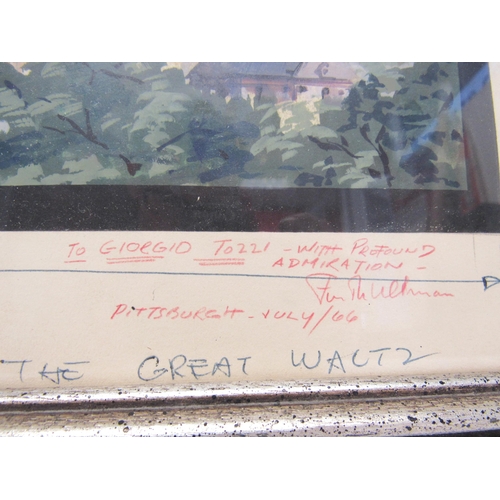 TO GIORGIO TOZZI - WITH PROFOUND
ADMIRATION -
PITTSBURGH - JULY/66
THE GREAT WALTZ